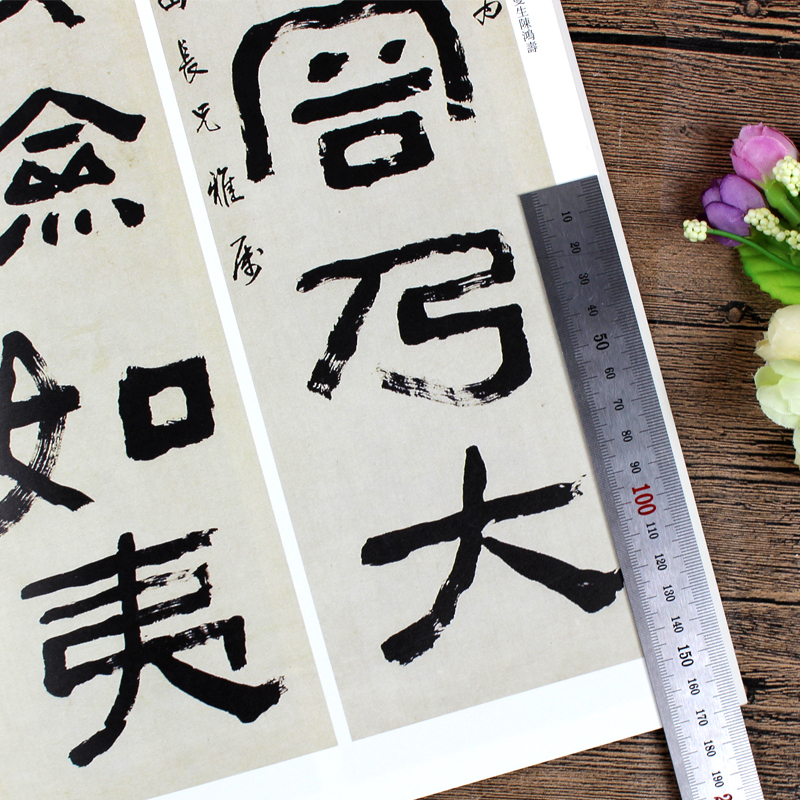 曼生陳鴻壽
為
容乃大
長兄雅屬
險如夷
10
20
30
40
50
60
70
80
90
100
110
120
130
140
150
160
170
180
190